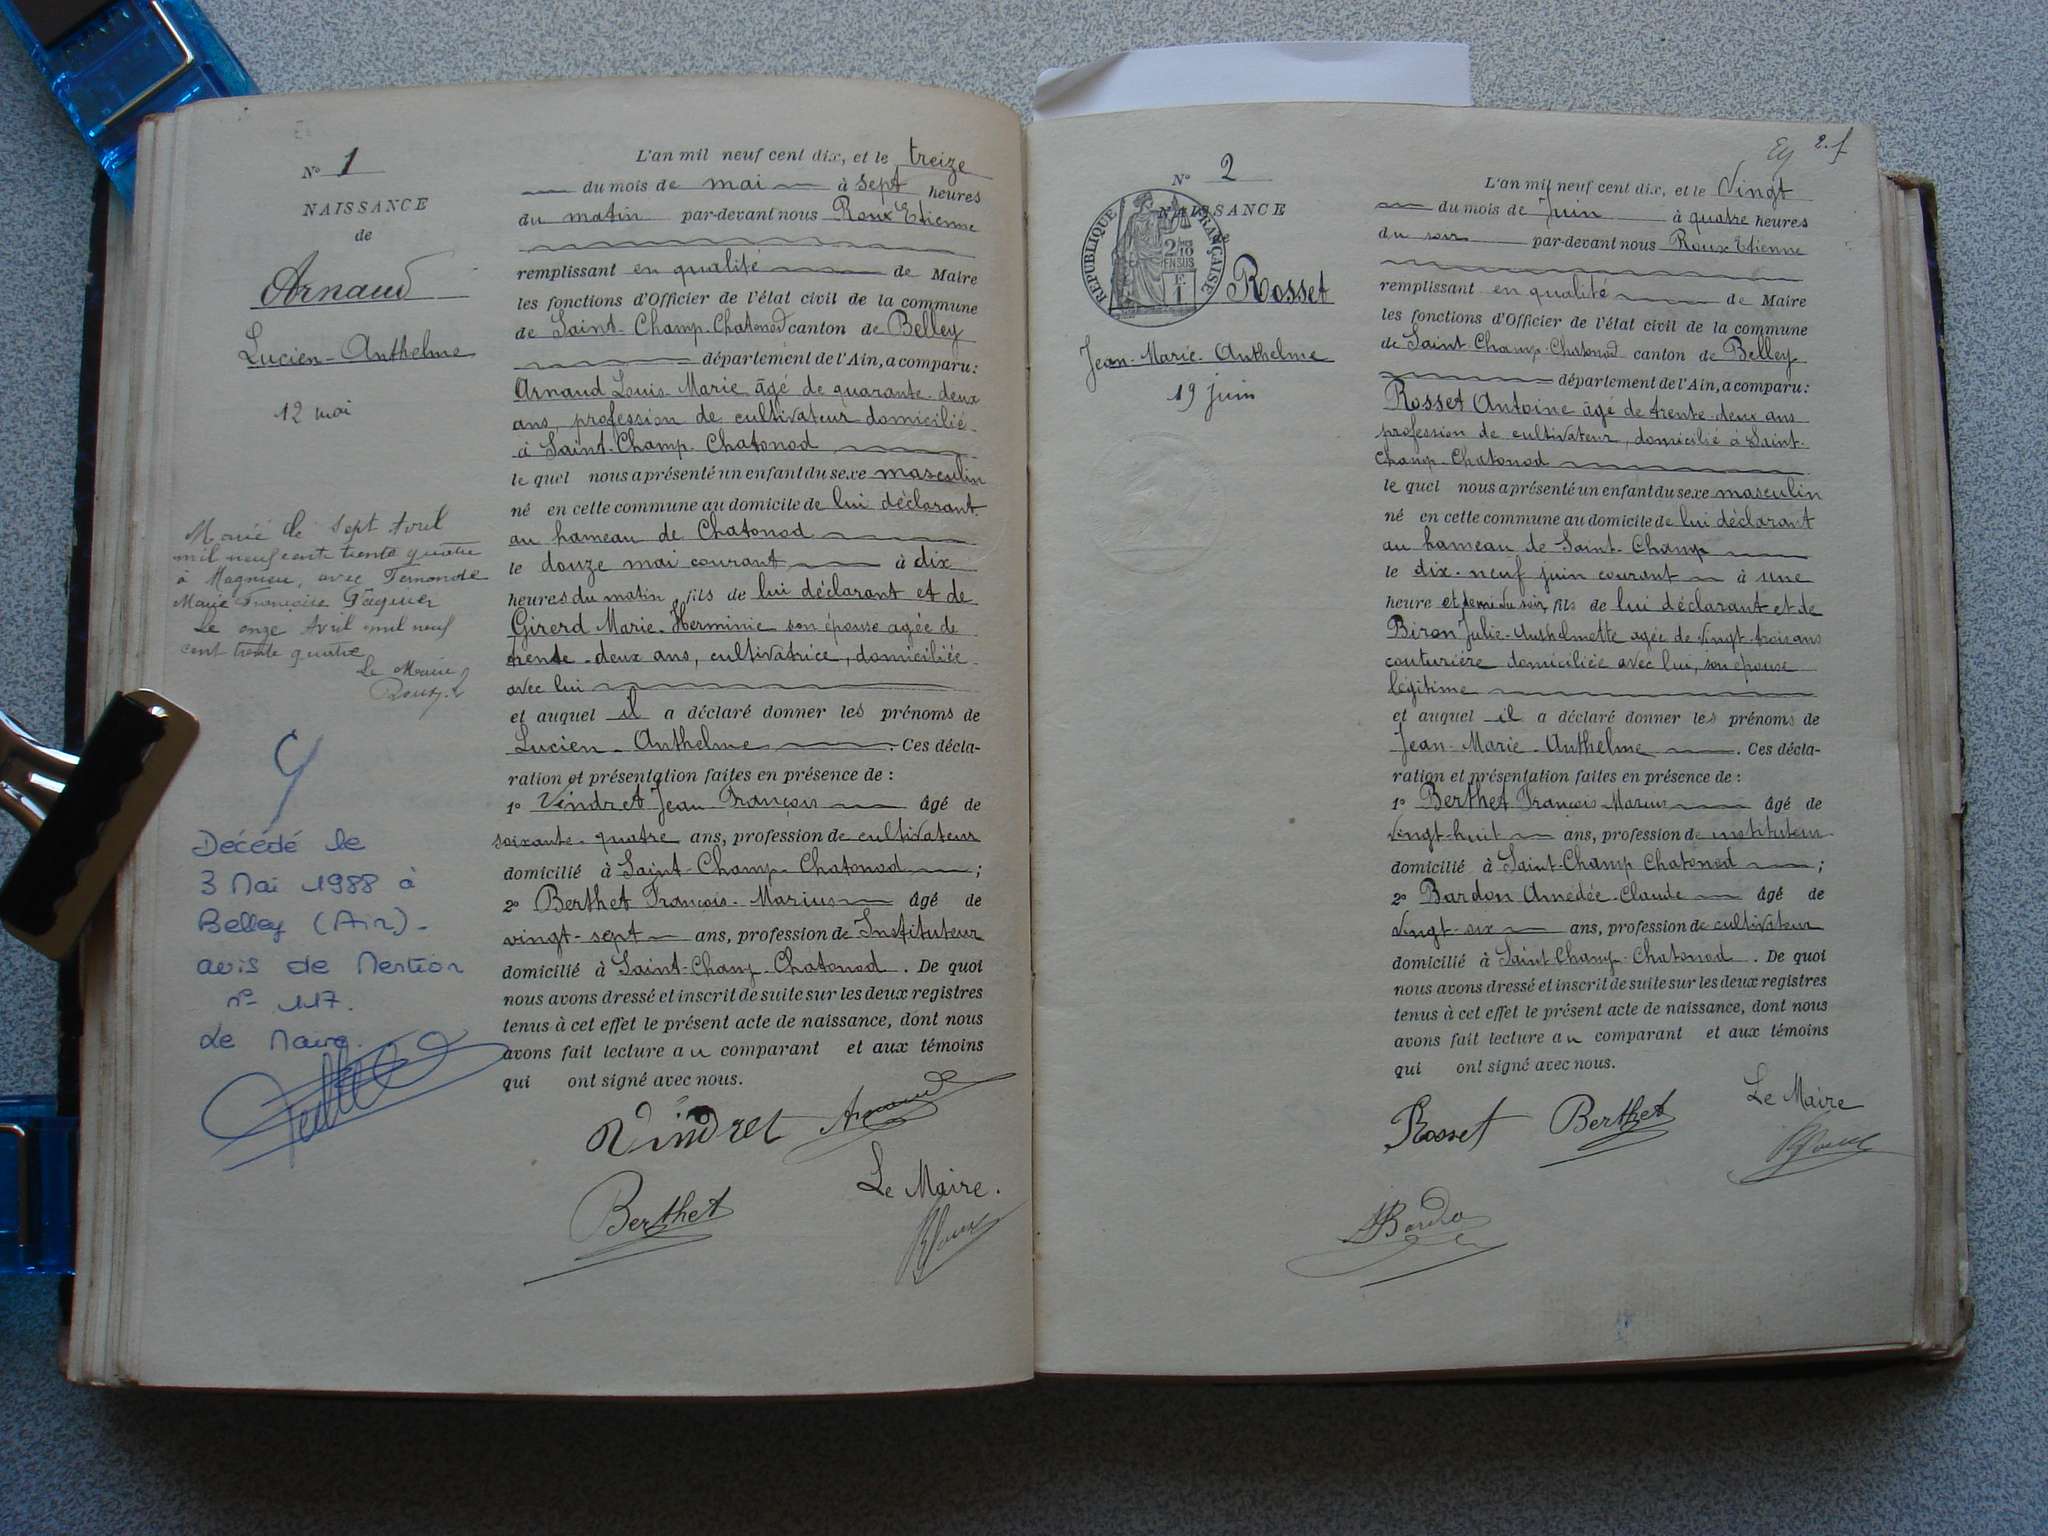 N° 1
NAISSANCE
de
Arnaud
Lucien-Anthelme
12 mai
Marié le sept Avril
mil neuf cent trente quatre
à Magnieu, avec Fernande
Marie Françoise
Le onze Avril mil neuf
cent trente quatre
Le Maire
Roux
Décédé le
3 Mai 1988 à
Belley (Ain).
avis de Mention
n° 117.
Le Maire.
L'an mil neuf cent dix, et le treize
du mois de mai à sept heures
du matin par-devant nous Roux Etienne
remplissant en qualité de Maire
les fonctions d'Officier de l'état civil de la commune
de Saint-Champ-Chatonod canton de Belley
département de l'Ain, a comparu:
Arnaud Louis Marie âgé de quarante-deux
ans, profession de cultivateur domicilié
à Saint-Champ-Chatonod
le quel nous a présenté un enfant du sexe masculin
né en cette commune au domicile de lui déclarant
au hameau de Chatonod
le douze mai courant à dix
heures du matin, fils de lui déclarant et de
Girerd Marie-Herminie son épouse agée de
trente-deux ans, cultivatrice, domiciliée
avec lui
et auquel il a déclaré donner les prénoms de
Lucien-Anthelme. Ces décla-
ration et présentation faites en présence de :
1° Vindret Jean François âgé de
soixante-quatre ans, profession de cultivateur
domicilié à Saint-Champ-Chatonod ;
2° Berthet François-Marius âgé de
vingt-sept ans, profession de Instituteur
domicilié à Saint-Champ-Chatonod. De quoi
nous avons dressé et inscrit de suite sur les deux registres
tenus à cet effet le présent acte de naissance, dont nous
avons fait lecture au comparant et aux témoins
qui ont signé avec nous.
Vindret Arnaud
Le Maire.
Berthet Roux
2.f
N° 2
NAISSANCE
de
RÉPUBLIQUE FRANÇAISE
2/10
EN SUS
F. 1
Rosset
Jean-Marie-Anthelme
19 juin
L'an mil neuf cent dix, et le Vingt
du mois de Juin à quatre heures
du soir par-devant nous Roux Etienne
remplissant en qualité de Maire
les fonctions d'Officier de l'état civil de la commune
de Saint-Champ-Chatonod canton de Belley
département de l'Ain, a comparu:
Rosset Antoine âgé de trente-deux ans
profession de cultivateur, domicilié à Saint-
Champ-Chatonod
le quel nous a présenté un enfant du sexe masculin
né en cette commune au domicile de lui déclarant
au hameau de Saint-Champ
le dix-neuf juin courant à une
heure et demi du soir, fils de lui déclarant et de
Biron Julie-Anthelmette agée de vingt-trois ans
couturière domiciliée avec lui, son épouse
légitime
et auquel il a déclaré donner les prénoms de
Jean-Marie-Anthelme. Ces décla-
ration et présentation faites en présence de :
1° Berthet François Marius âgé de
vingt-huit ans, profession de instituteur
domicilié à Saint-Champ Chatonod ;
2° Bardon Amedée-Claude âgé de
vingt-six ans, profession de cultivateur
domicilié à Saint Champ-Chatonod. De quoi
nous avons dressé et inscrit de suite sur les deux registres
tenus à cet effet le présent acte de naissance, dont nous
avons fait lecture au comparant et aux témoins
qui ont signé avec nous.
Rosset Berthet Le Maire
Roux
Bardon